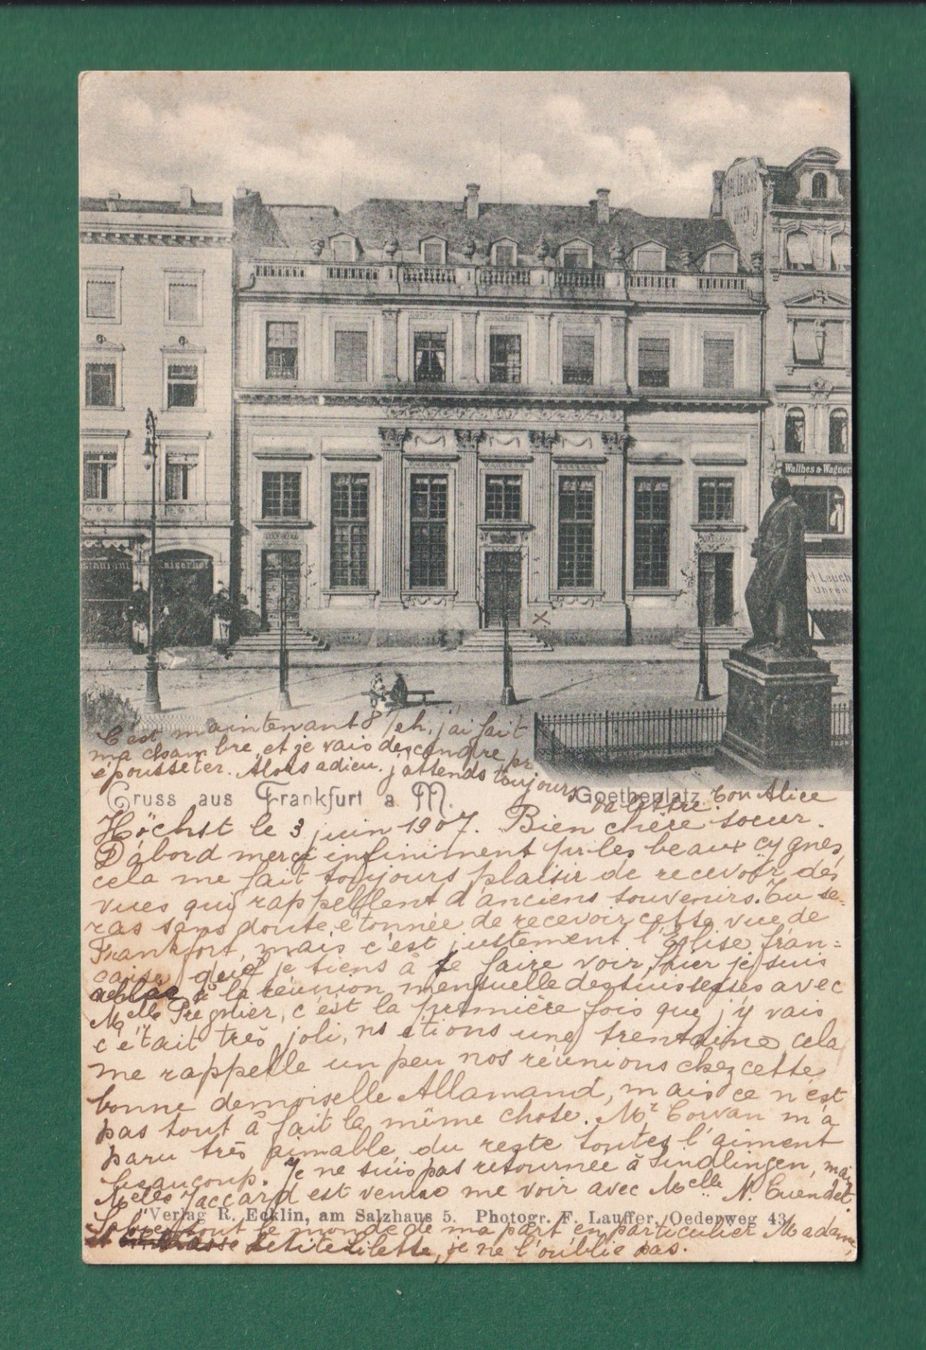 Wallhes & Wagner
Uhren
C'est maintenant 8 ½ h, j'ai fait
ma chambre, et je vais descendre pr
épousseter. Alors adieu. j'attends toujours
Gruss aus Frankfurt a M.
Goetheplatz
ta lettre. Ton Alice
Höchst le 3 juin 1907. Bien chère soeur.
D'abord merci infiniment pr les beaux cygnes,
cela me fait toujours plaisir de recevoir des
vues qui rappellent d'anciens souvenirs. Tu se-
ras sans doute étonnée de recevoir cette vue de
Frankfort, mais c'est justement l'Église fran=
çaise que je tiens à te faire voir, hier je suis
allée à la réunion mensuelle des suissesses avec
Melle Pregnier, c'est la première fois que j'y vais
c'était très joli, ns étions une trentaine cela
me rappelle un peu nos réunions chez cette
bonne demoiselle Allamand, mais ce n'est
pas tout à fait la même chose. Mr Corvan m'a
paru très aimable, du reste toutes l'aiment
beaucoup. Je ne suis pas retournée à Sindlingen, mais
Melles Jaccard est venue me voir avec Melle N. Cuendet.
Verlag R. Ecklin, am Salzhaus 5. Photogr. F. Lauffer, Oederweg 43.
bien tout le monde de ma part en particulier Madame
et petite Lilette, je ne l'oublie pas.